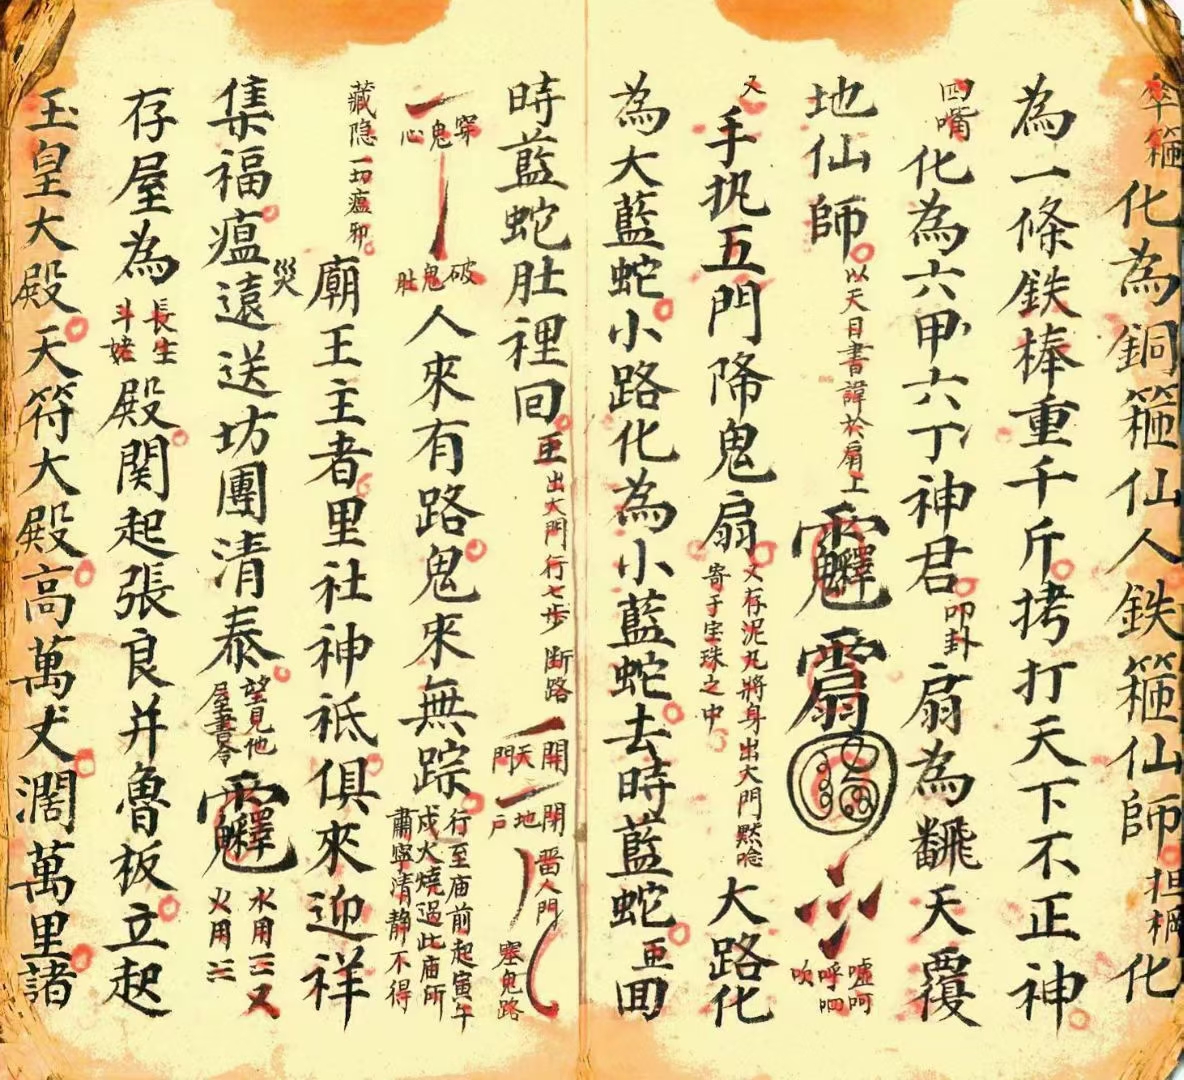 傘箍化為銅箍仙人鉄箍仙師担棡化
為一條鉄棒重千斤拷打天下不正神
四嘴化為六甲六丁神君叩卦扇為飜天覆
地仙師以天目書諱於扇上
嘘呵呼呬吹
又手执五門降鬼扇又存泥丸將身出大門默唸寄于宝珠之中大路化
為大藍蛇小路化為小藍蛇去時藍蛇回
時藍蛇肚裡回出大門行七步断路開天門開地戶畱人門塞鬼路
穿鬼心破鬼肚人來有路鬼來無踪行至庙前起寅午戍火燒過此庙所肅寧清静不得
藏隐一切瘟邪廟王主者里社神祇俱來迎祥
集福瘟災遠送坊團清泰望見他屋書令水用三又火用三
存屋為長生斗姥殿関起張良并魯板立起
玉皇大殿天符大殿高萬丈濶萬里諸